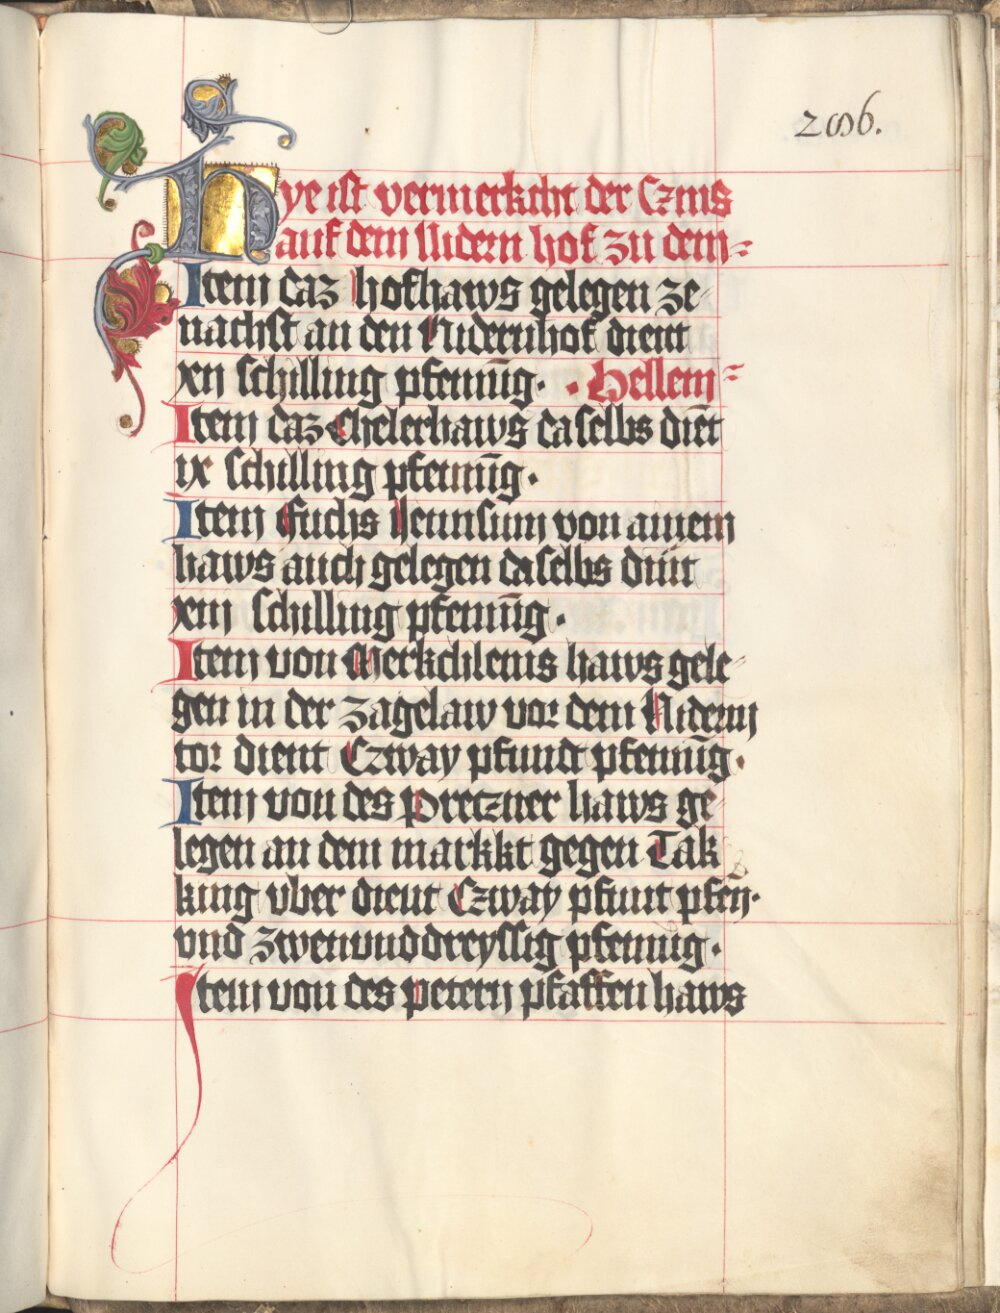 2006.
Hye ist vermerkcht der Czins
auf dem Nidern hof zu dem=
Item daz hofhaws gelegen ze-
nachst an den Nidernhof dient
xij schilling pfennīg. · Hellem=
Item daz Chelerhaws daselbs diēt
ix schilling pfennīg.
Item Fuchs von ainem
haws auch gelegen daselbs dint
xiij schilling pfennīg.
Item von Merkchleins haws gele-
gen in der Zagelaw vor dem Nidernn
tor dient Czway pfundt pfennīg.
Item von des Preczner haws ge-
legen an dem markkt gegen Tak
king vber dient Czway pfunt pfen.
vnd zwenvnddreyssig pfennig.
Item von des petern pfaffen haws